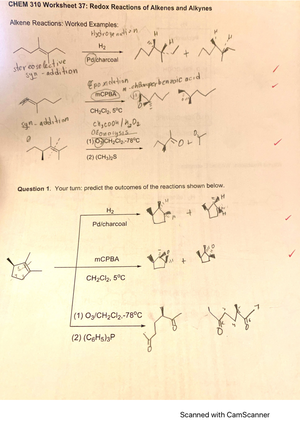 CHEM 310 Worksheet 37: Redox Reactions of Alkenes and Alkynes
Alkene Reactions: Worked Examples:
Hydrogenation
H₂
Pd/charcoal
stereoselective
syn-addition
Epoxidation
mCPBA
CH₂Cl₂, 5°C
syn-addition
CH₃COOH / H₂O₂
Ozonolysis
(1) O₃/CH₂Cl₂,-78°C
(2) (CH₃)₂S
Question 1. Your turn: predict the outcomes of the reactions shown below.
H₂
Pd/charcoal
mCPBA
CH₂Cl₂, 5°C
(1) O₃/CH₂Cl₂,-78°C
(2) (C₆H₅)₃P
Scanned with CamScanner